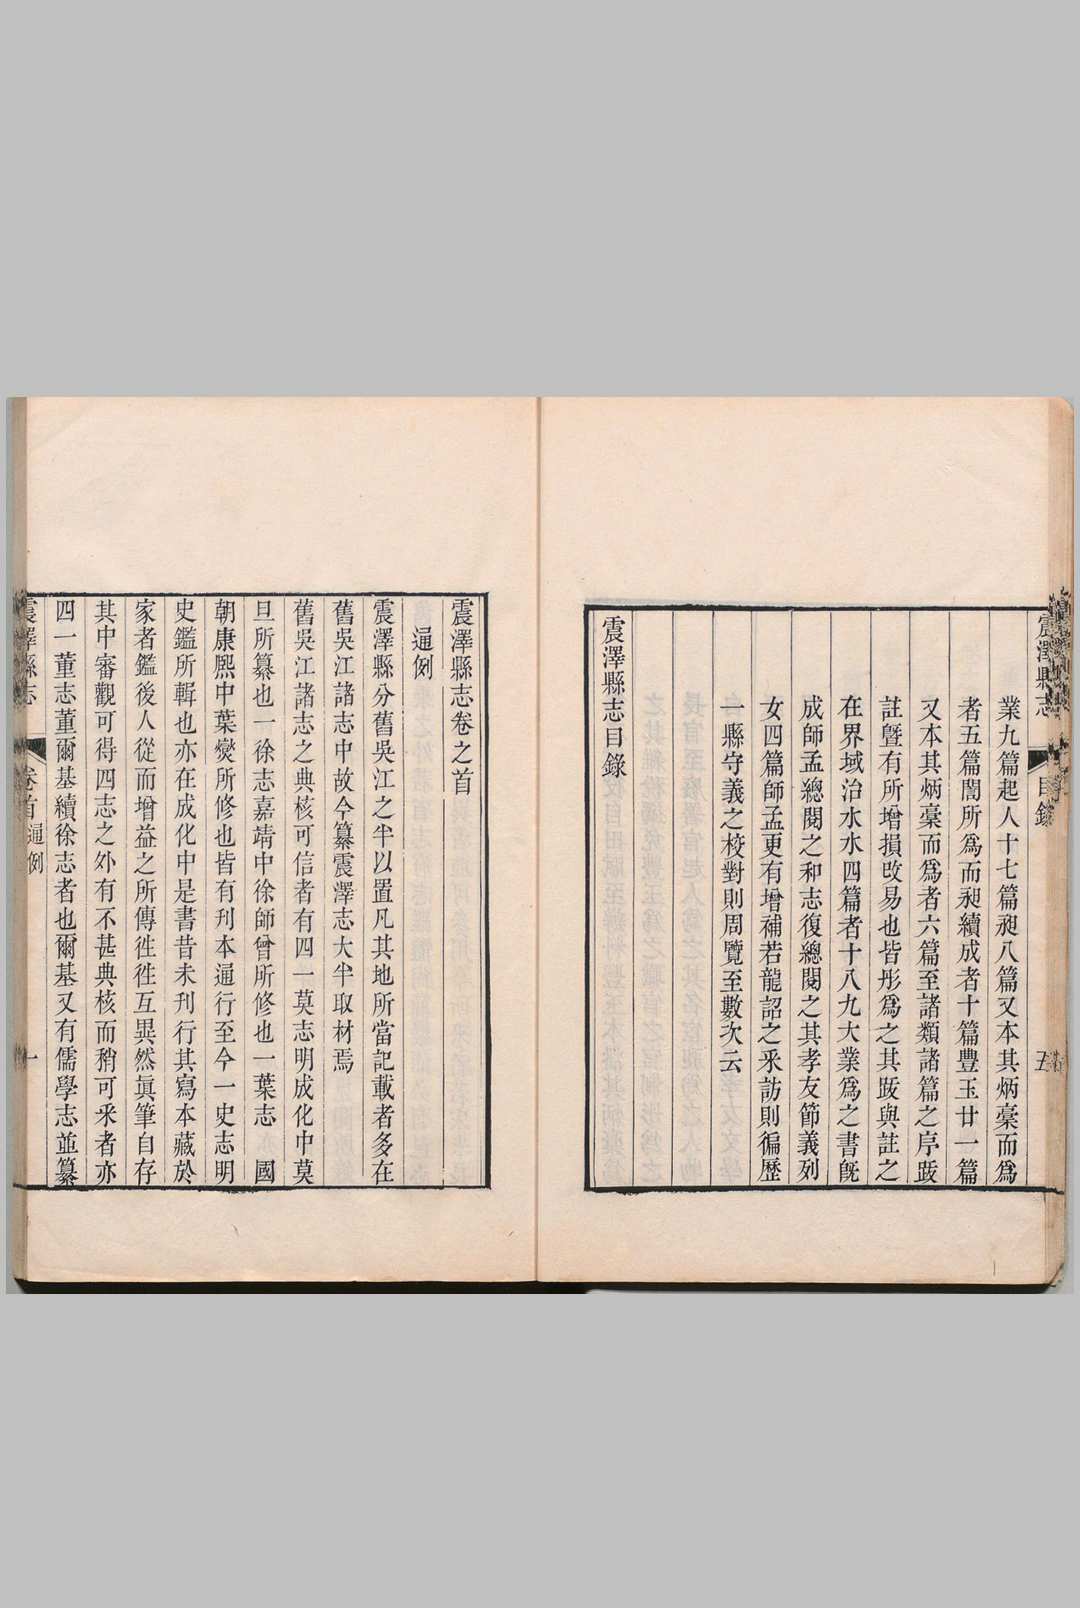 震澤縣志 目錄 五
業九篇起人十七篇昶八篇又本其炳稾而爲
者五篇闇所爲而昶續成者十篇豐玉廿一篇
又本其炳稾而爲者六篇至諸類諸篇之序䟦
註曁有所增損改易也皆彤爲之其䟦與註之
在界域治水水四篇者十八九大業爲之書旣
成師孟總閱之和志復總閱之其孝友節義列
女四篇師孟更有增補若龍詔之采訪則徧歷
一縣守義之校對則周覽至數次云
震澤縣志目錄
震澤縣志卷之首
通例
震澤縣分舊吳江之半以置凡其地所當記載者多在
舊吳江諸志中故今纂震澤志大半取材焉
舊吳江諸志之典核可信者有四一莫志明成化中莫
旦所纂也一徐志嘉靖中徐師曾所修也一葉志 國
朝康熙中葉燮所修也皆有刊本通行至今一史志明
史鑑所輯也亦在成化中是書昔未刊行其寫本藏於
家者鑑後人從而增益之所傳徃徃互異然眞筆自存
其中審觀可得四志之外有不甚典核而稍可采者亦
四一董志董爾基續徐志者也爾基又有儒學志並纂
震澤縣志 卷首 通例 一